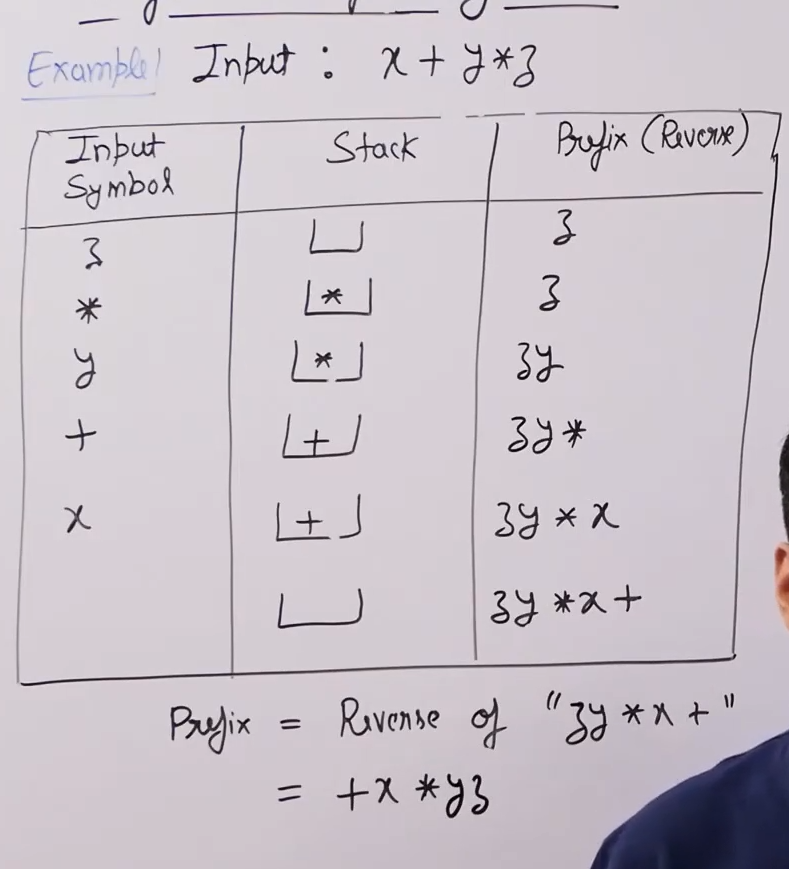 Example! Input : x + y*z
Input Symbol Stack Prefix (Reverse)
z z
* * z
y * zy
+ + zy*
x + zy*x
zy*x+
Prefix = Reverse of "zy*x+"
= +x*yz